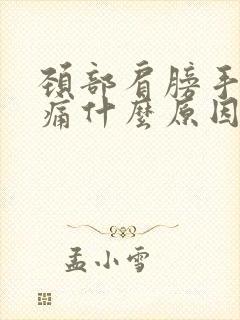 颈部肩膀手
痛什麼原因
孟小雪